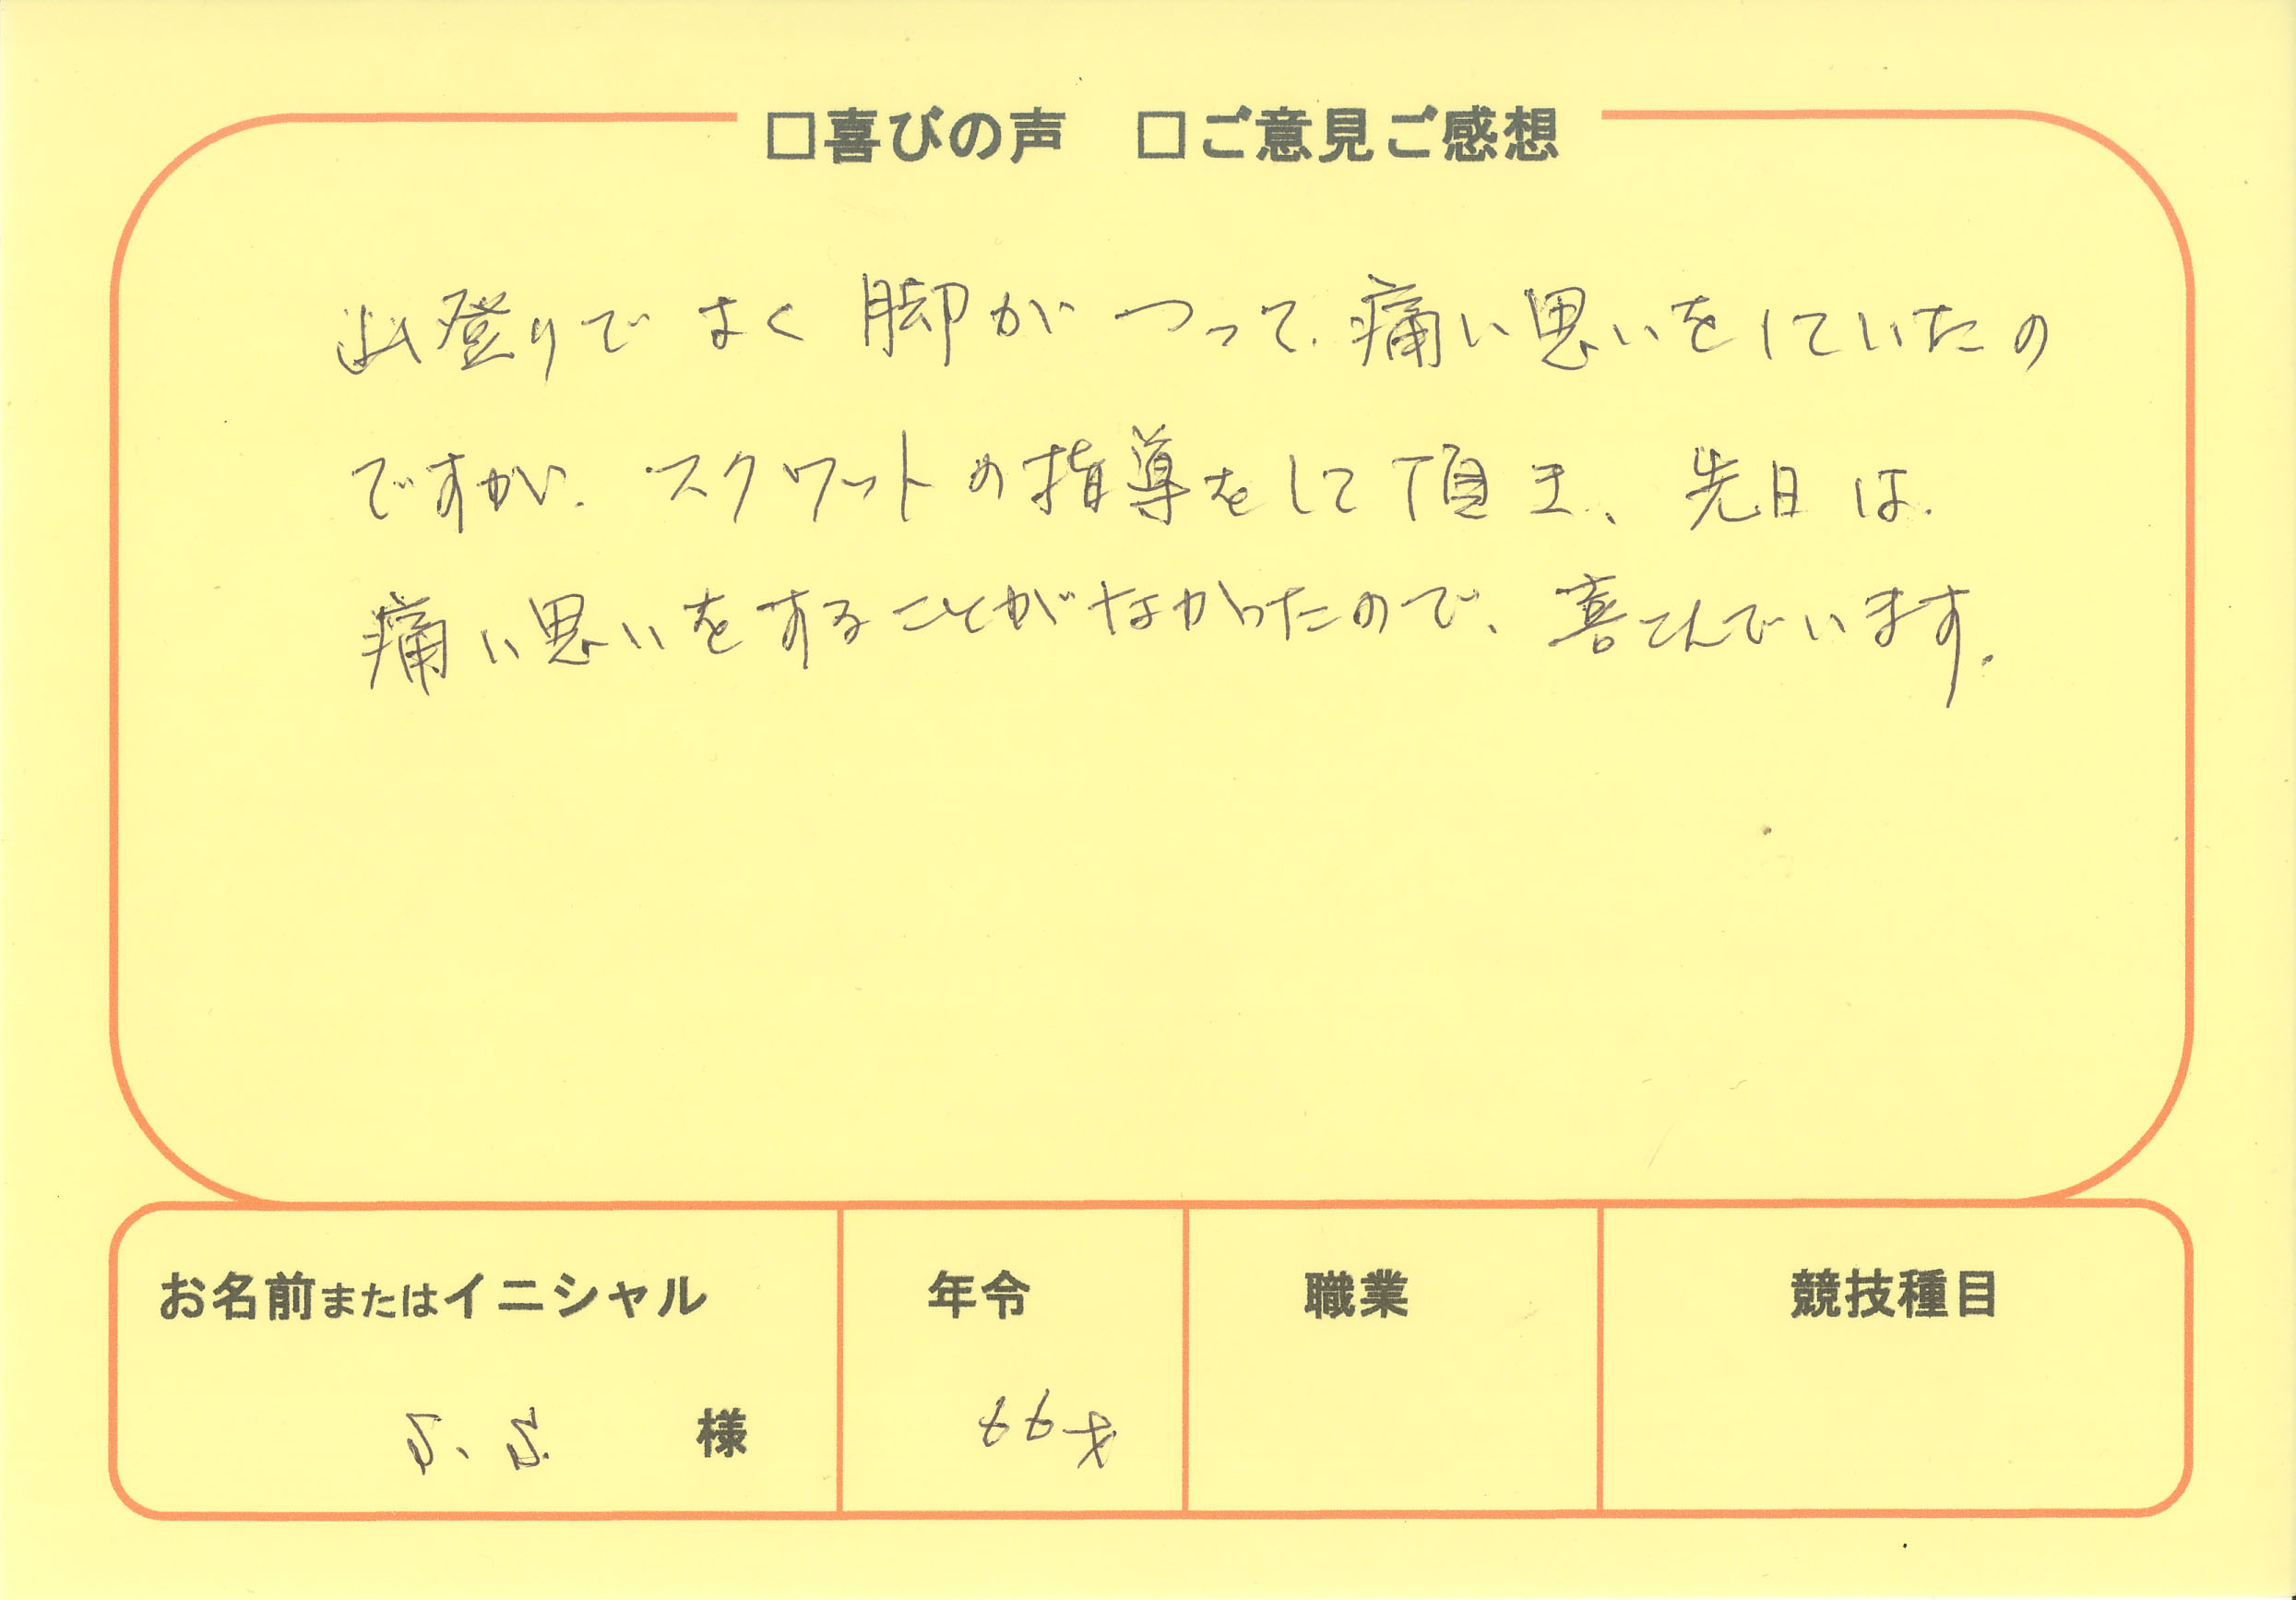 □喜びの声　□ご意見ご感想
山登りでよく脚がつって、痛い思いをしていたの
ですが、スクワットの指導をして頂き、先日は
痛い思いをすることがなかったので、喜んでいます。
お名前またはイニシャル　年令　職業　競技種目
S.S.　様　66才